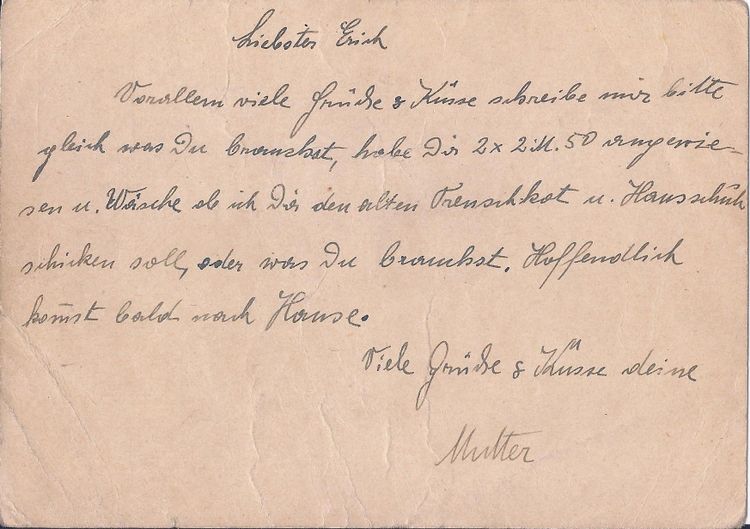 Liebster Erich
Vorallem viele Grüße & Küsse schreibe mir bitte
gleich was Du brauchst, habe Dir 2 x 2 M. 50 angewie-
sen u. Wäsche ob ich Dir den alten Trenschkot u. Hausschuh
schicken soll, oder was Du brauchst. Hoffendlich
kom̄st bald nach Hause.
Viele Grüße & Küsse deine
Mutter